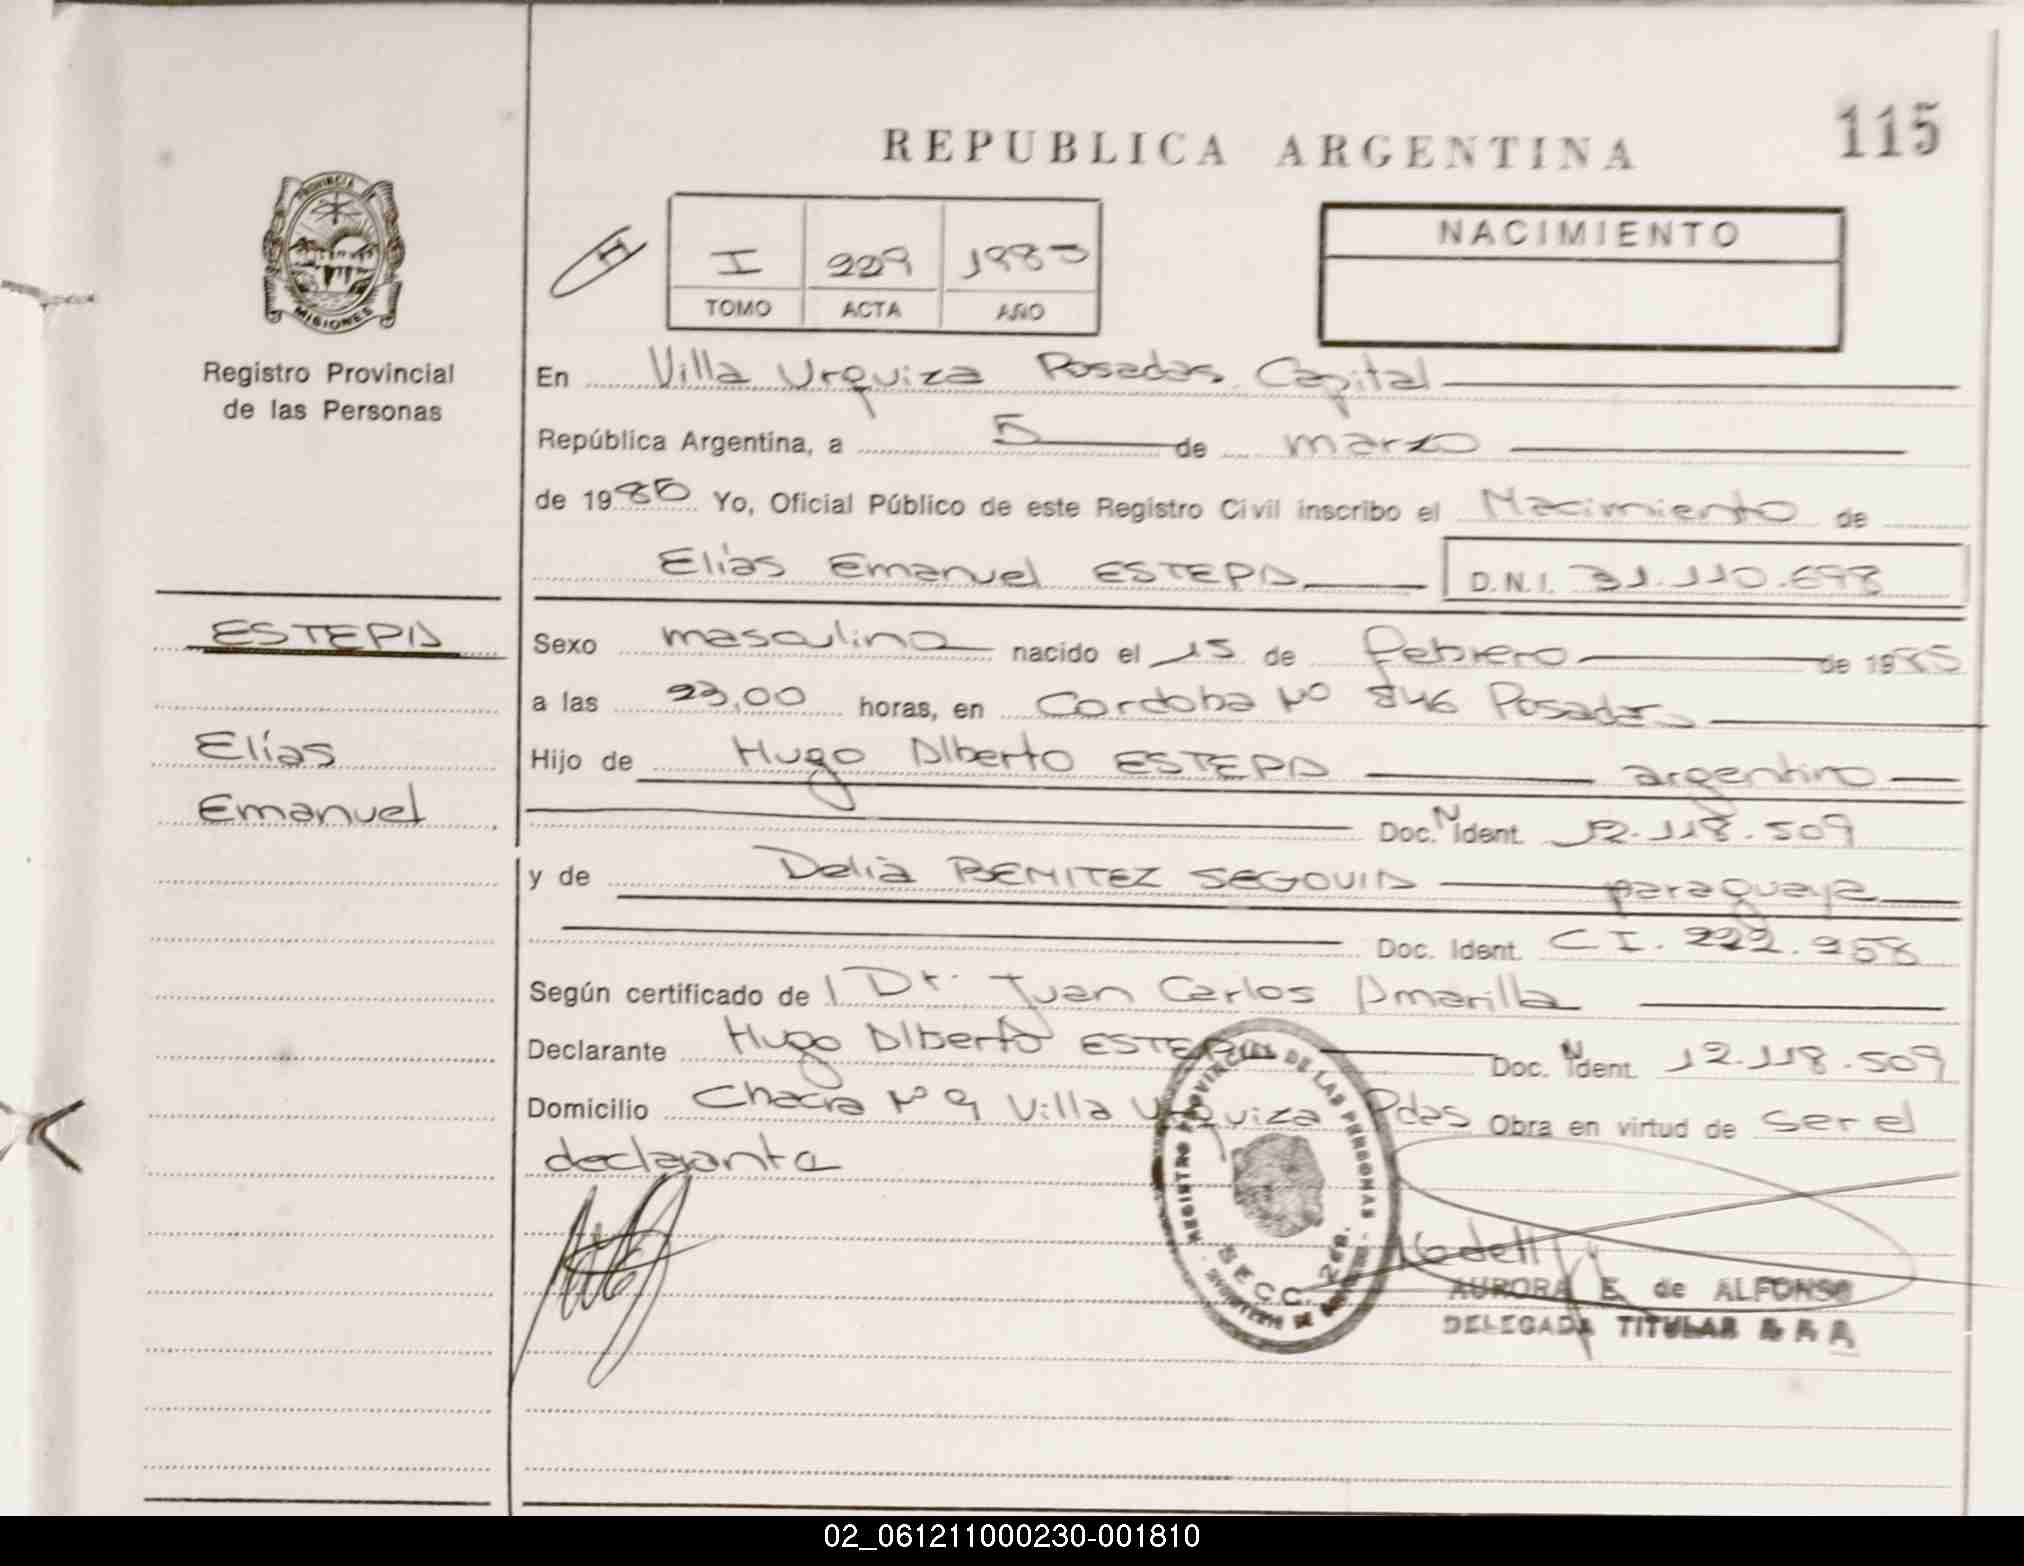 REPUBLICA ARGENTINA
115
PROVINCIA
MISIONES
Registro Provincial
de las Personas
I 229 1985
TOMO ACTA AÑO
NACIMIENTO
En Villa Urquiza Posadas Capital
República Argentina, a 5 de marzo
de 1985 Yo, Oficial Público de este Registro Civil inscribo el Nacimiento de
Elías Emanuel ESTEPA D.N.I. 31.110.698
ESTEPA
Elías
Emanuel
Sexo masculino nacido el 15 de febrero de 1985
a las 23,00 horas, en Cordoba Nº 846 Posadas
Hijo de Hugo Alberto ESTEPA argentino
Doc. N Ident. 12.118.509
y de Delia BENITEZ SEGOVIA paraguaya
Doc. Ident. C I. 222.958
Según certificado de Dr. Juan Carlos Amarilla
Declarante Hugo Alberto ESTEPA Doc. N Ident. 12.118.509
Domicilio Chacra Nº 9 Villa Urquiza Pdas Obra en virtud de ser el
declarante
REGISTRO PROVINCIAL DE LAS PERSONAS
SECC. 268.
AURORA E. de ALFONSO
DELEGADA TITULAR
02_061211000230-001810